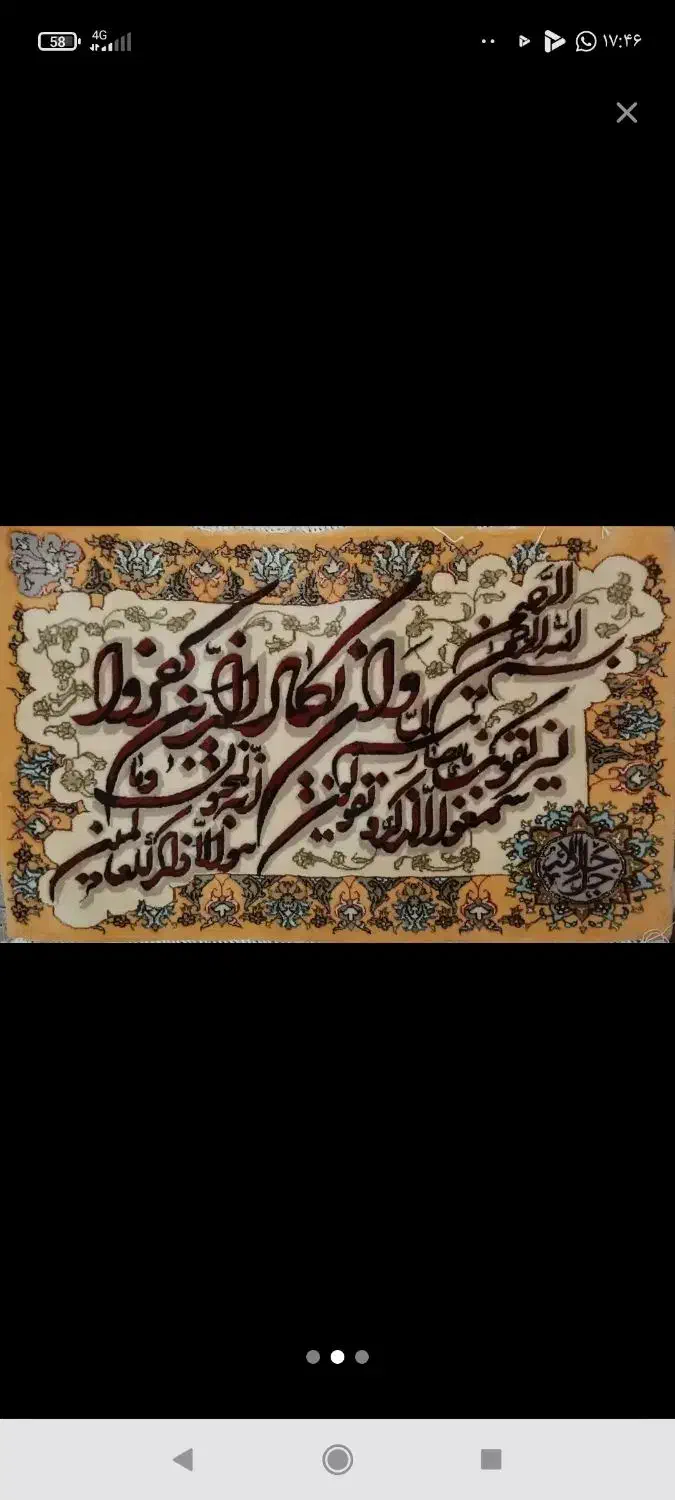 58
4G
۱۷:۴۶
بسم الله الرحمن الرحیم
وان یکاد الذین کفروا
لیزلقونک بابصارهم لما سمعوا الذکر و یقولون
انه لمجنون وما
هو الا ذکر للعالمین
جل جلاله